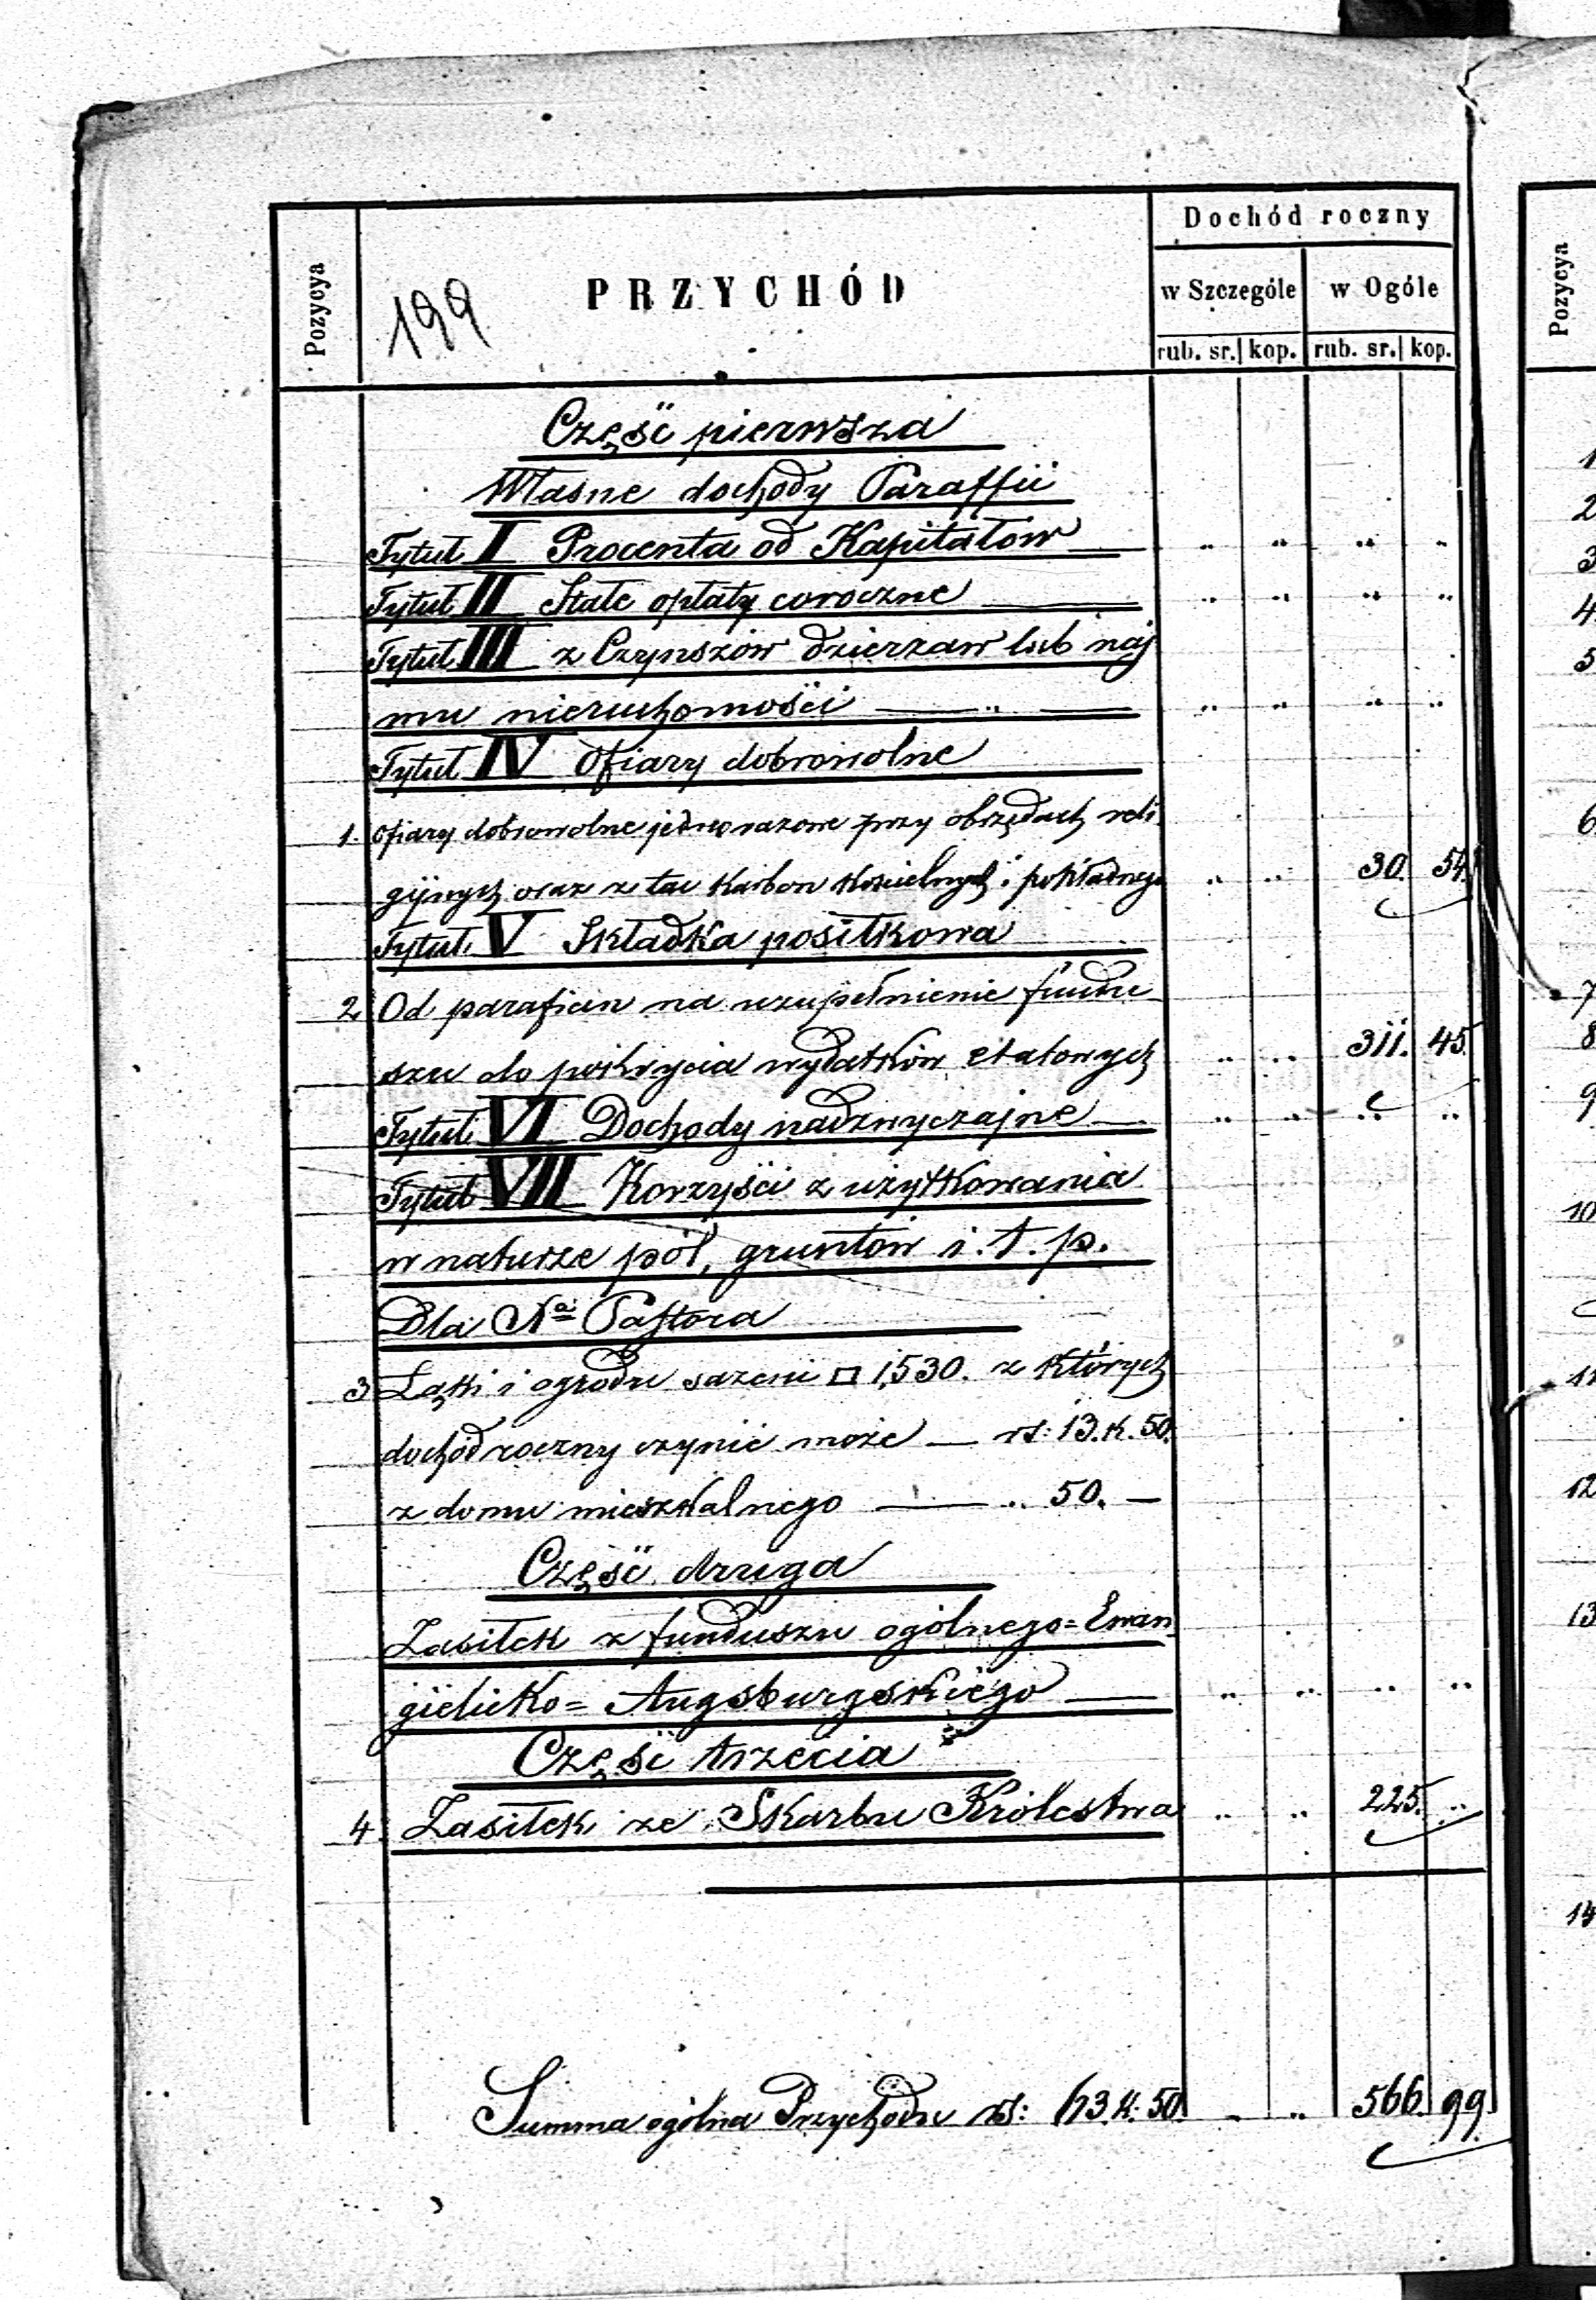 Dochód roczny
Pozycya
199
PRZYCHÓD
w Szczególe w Ogóle
rub. sr. kop. rub. sr. kop.
Pozycya
Część pierwsza
Własne dochody Paraffii
Tytuł I Procenta od Kapitałów — „ „ „ „
Tytuł II Stałe opłaty coroczne — „ „ „ „
Tytuł III z Czynszów dzierzaw lub naj
mu nieruchomości — „ — „ „ „ „
Tytuł IV Ofiary dobrowolne
1. Ofiary dobrowolne jednorazowe przy obrzędach reli
gijnych oraz z tac karbon kościelnych i pokładnego „ „ 30. 54.
Tytuł V Składka posiłkowa
2. Od parafian na uzupełnienie fundu
szu do pokrycia wydatków etatowych „ „ 311. 45
Tytuł VI Dochody nadzwyczajne — „ „ „ „
Tytuł VII Korzyści z użytkowania
w naturze pól, gruntów i. t. p.
Dla Xa Pastora
3 Łąki i ogrodu sazeni □ 1,530. z których
dochód roczny czynić może — rs: 13. k. 50.
z domu mieszkalnego — „ 50. —
Część druga
Zasiłek z funduszu ogólnego = Ewan
gielicko = Augsburgskiego — „ „ „ „
Część trzecia
4. Zasiłek ze Skarbu Królestwa „ „ 225. „
Summa ogólna Przychodu rs: 63. k: 50. „ „ 566. 99.
1
2
3
4
5
6
7
8
9
10
11
12
13
14